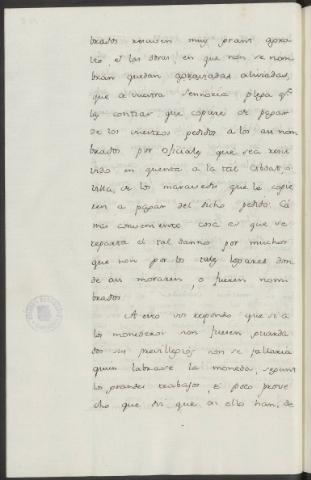 brados resciven muy grant agra
vio, et las otras, en que non se nom
bran quedan agraviadas aliviadas,
que a vuestra sennoria plega que
las contias que copiere de pagar
de los vuestros pedidos a los asi nom
brados por oficiales que sea resci
vido en quenta a la tal Cibdat, o
villa, de los maravedis que le copie
ren a pagar del dicho pedido. Ca
mas conveniente cosa es que se
reparta el tal danno por muchos
que non por los tales logares don
de asi moraren, o fueren nom
brados.
A esto vos respondo que si a
los monederos non fuesen guarda
dos sus previllegios non se fallaria
quien labrase la moneda, segunt
los grandes trabajos, e poco prove
cho que di que en ello han, de